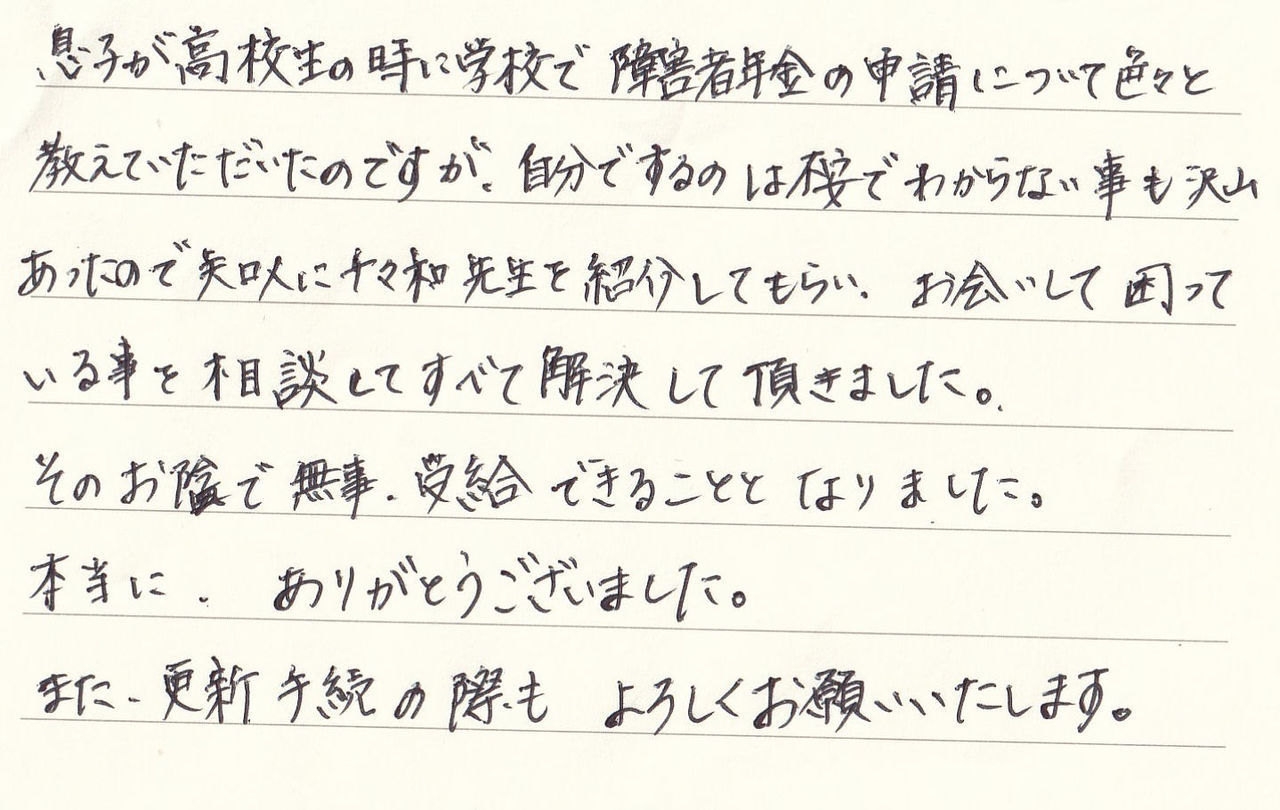 息子が高校生の時に学校で障害者年金の申請について色々と
教えていただいたのですが、自分でするのは不安でわからない事も沢山
あったので知人に千々和先生を紹介してもらい、お会いして困って
いる事を相談してすべて解決して頂きました。
そのお陰で無事、受給できることとなりました。
本当に、ありがとうございました。
また、更新手続の際も よろしくお願いいたします。